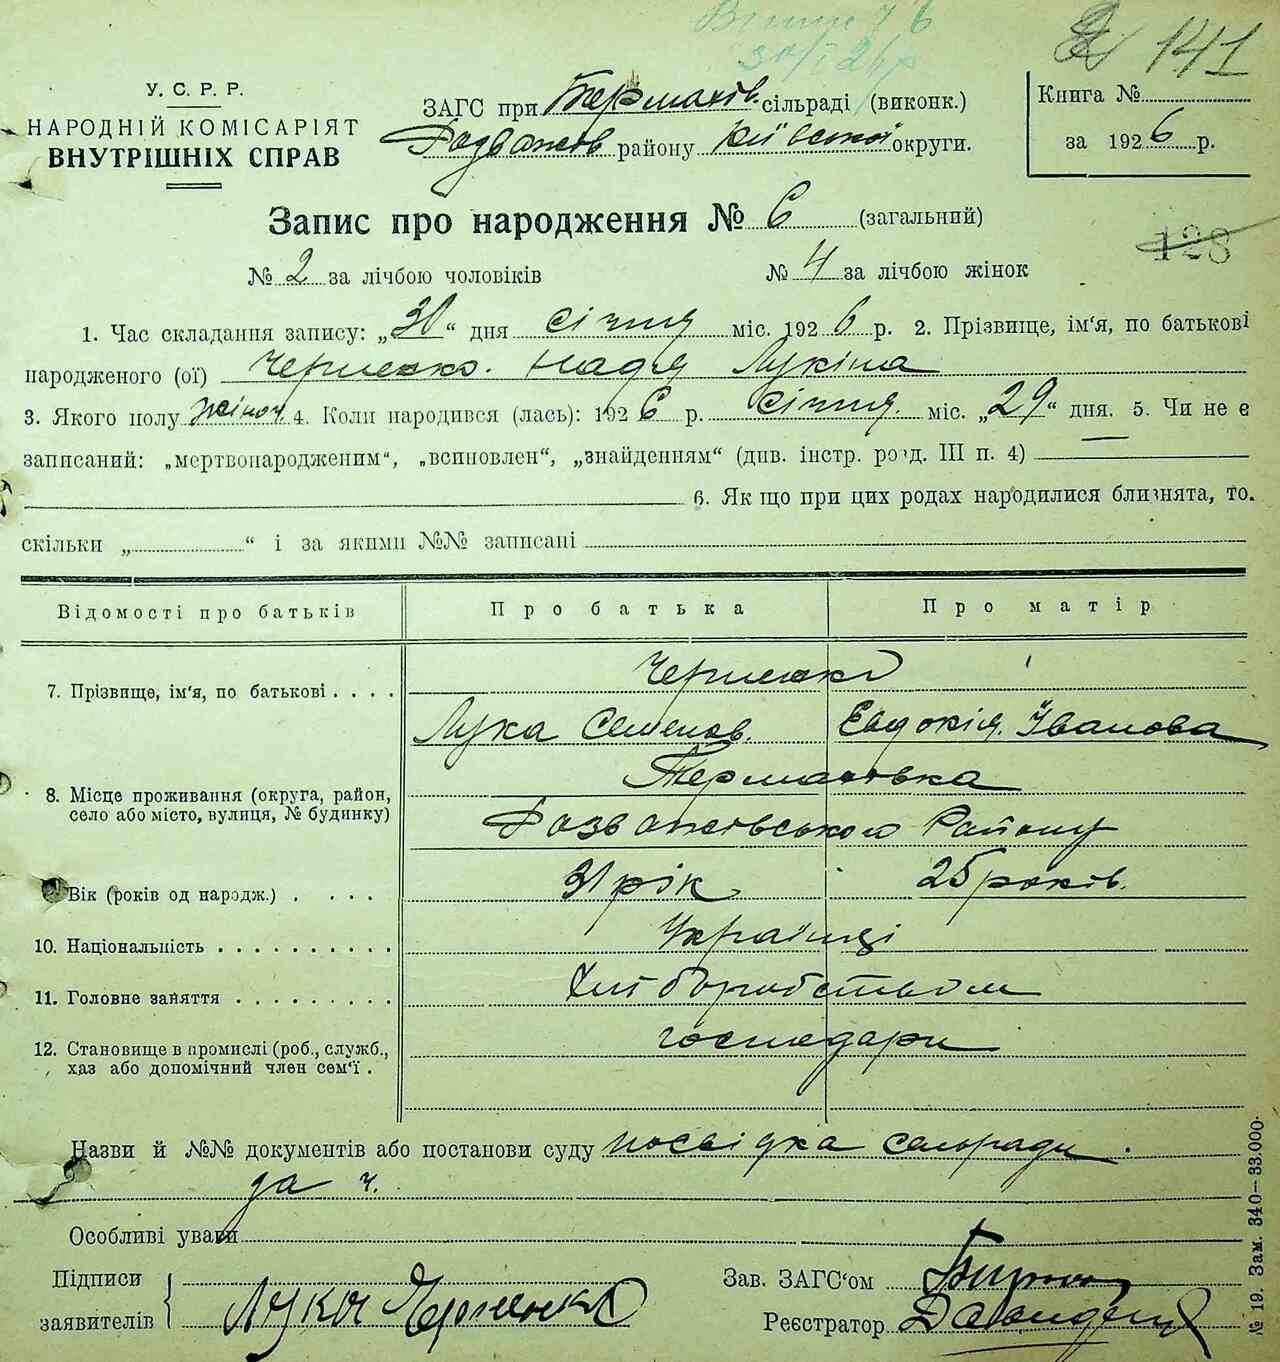 141
У. С. Р. Р.
НАРОДНІЙ КОМІСАРІЯТ
ВНУТРІШНІХ СПРАВ
ЗАГС при Термахів. сільраді (виконк.)
Розважів району Київської округи.
Книга №
за 1926 р.
Запис про народження № 6 (загальний)
128
№ 2 за лічбою чоловіків № 4 за лічбою жінок
1. Час складання запису: „30“ дня січня міс. 1926 р. 2. Прізвище, ім'я, по батькові
народженого (ої) Черненко. Надія Лукіна
3. Якого полу жіноч 4. Коли народився (лась): 1926 р. січня. міс. „29“ дня. 5. Чи не є
записаний: „мертвонародженим“, „всиновлен“, „знайденням“ (див. інстр. розд. III п. 4)
6. Як що при цих родах народилися близнята, то.
скільки „ “ і за якими №№ записані
Відомості про батьків Про батька Про матір
7. Прізвище, ім'я, по батькові . . . . Черненко
Лука Семенов. Евдокія. Іванова
8. Місце проживання (округа, район,
село або місто, вулиця, № будинку)
Термахівка
Розважівського Району
Вік (років од народж.) . . . . 31 рік 25 років.
10. Національність . . . . . . . . . . Українці
11. Головне заняття . . . . . . . . . Хліборобством
12. Становище в промислі (роб., служб.,
хаз або допомічний член сем'ї .
господари
Назви й №№ документів або постанови суду посвідка сельради.
да ч.
Особливі уваги
Підписи
заявителів
Лука Черненко
Зав. ЗАГС'ом
Реєстратор
№ 19. Зам. 340—33.000.